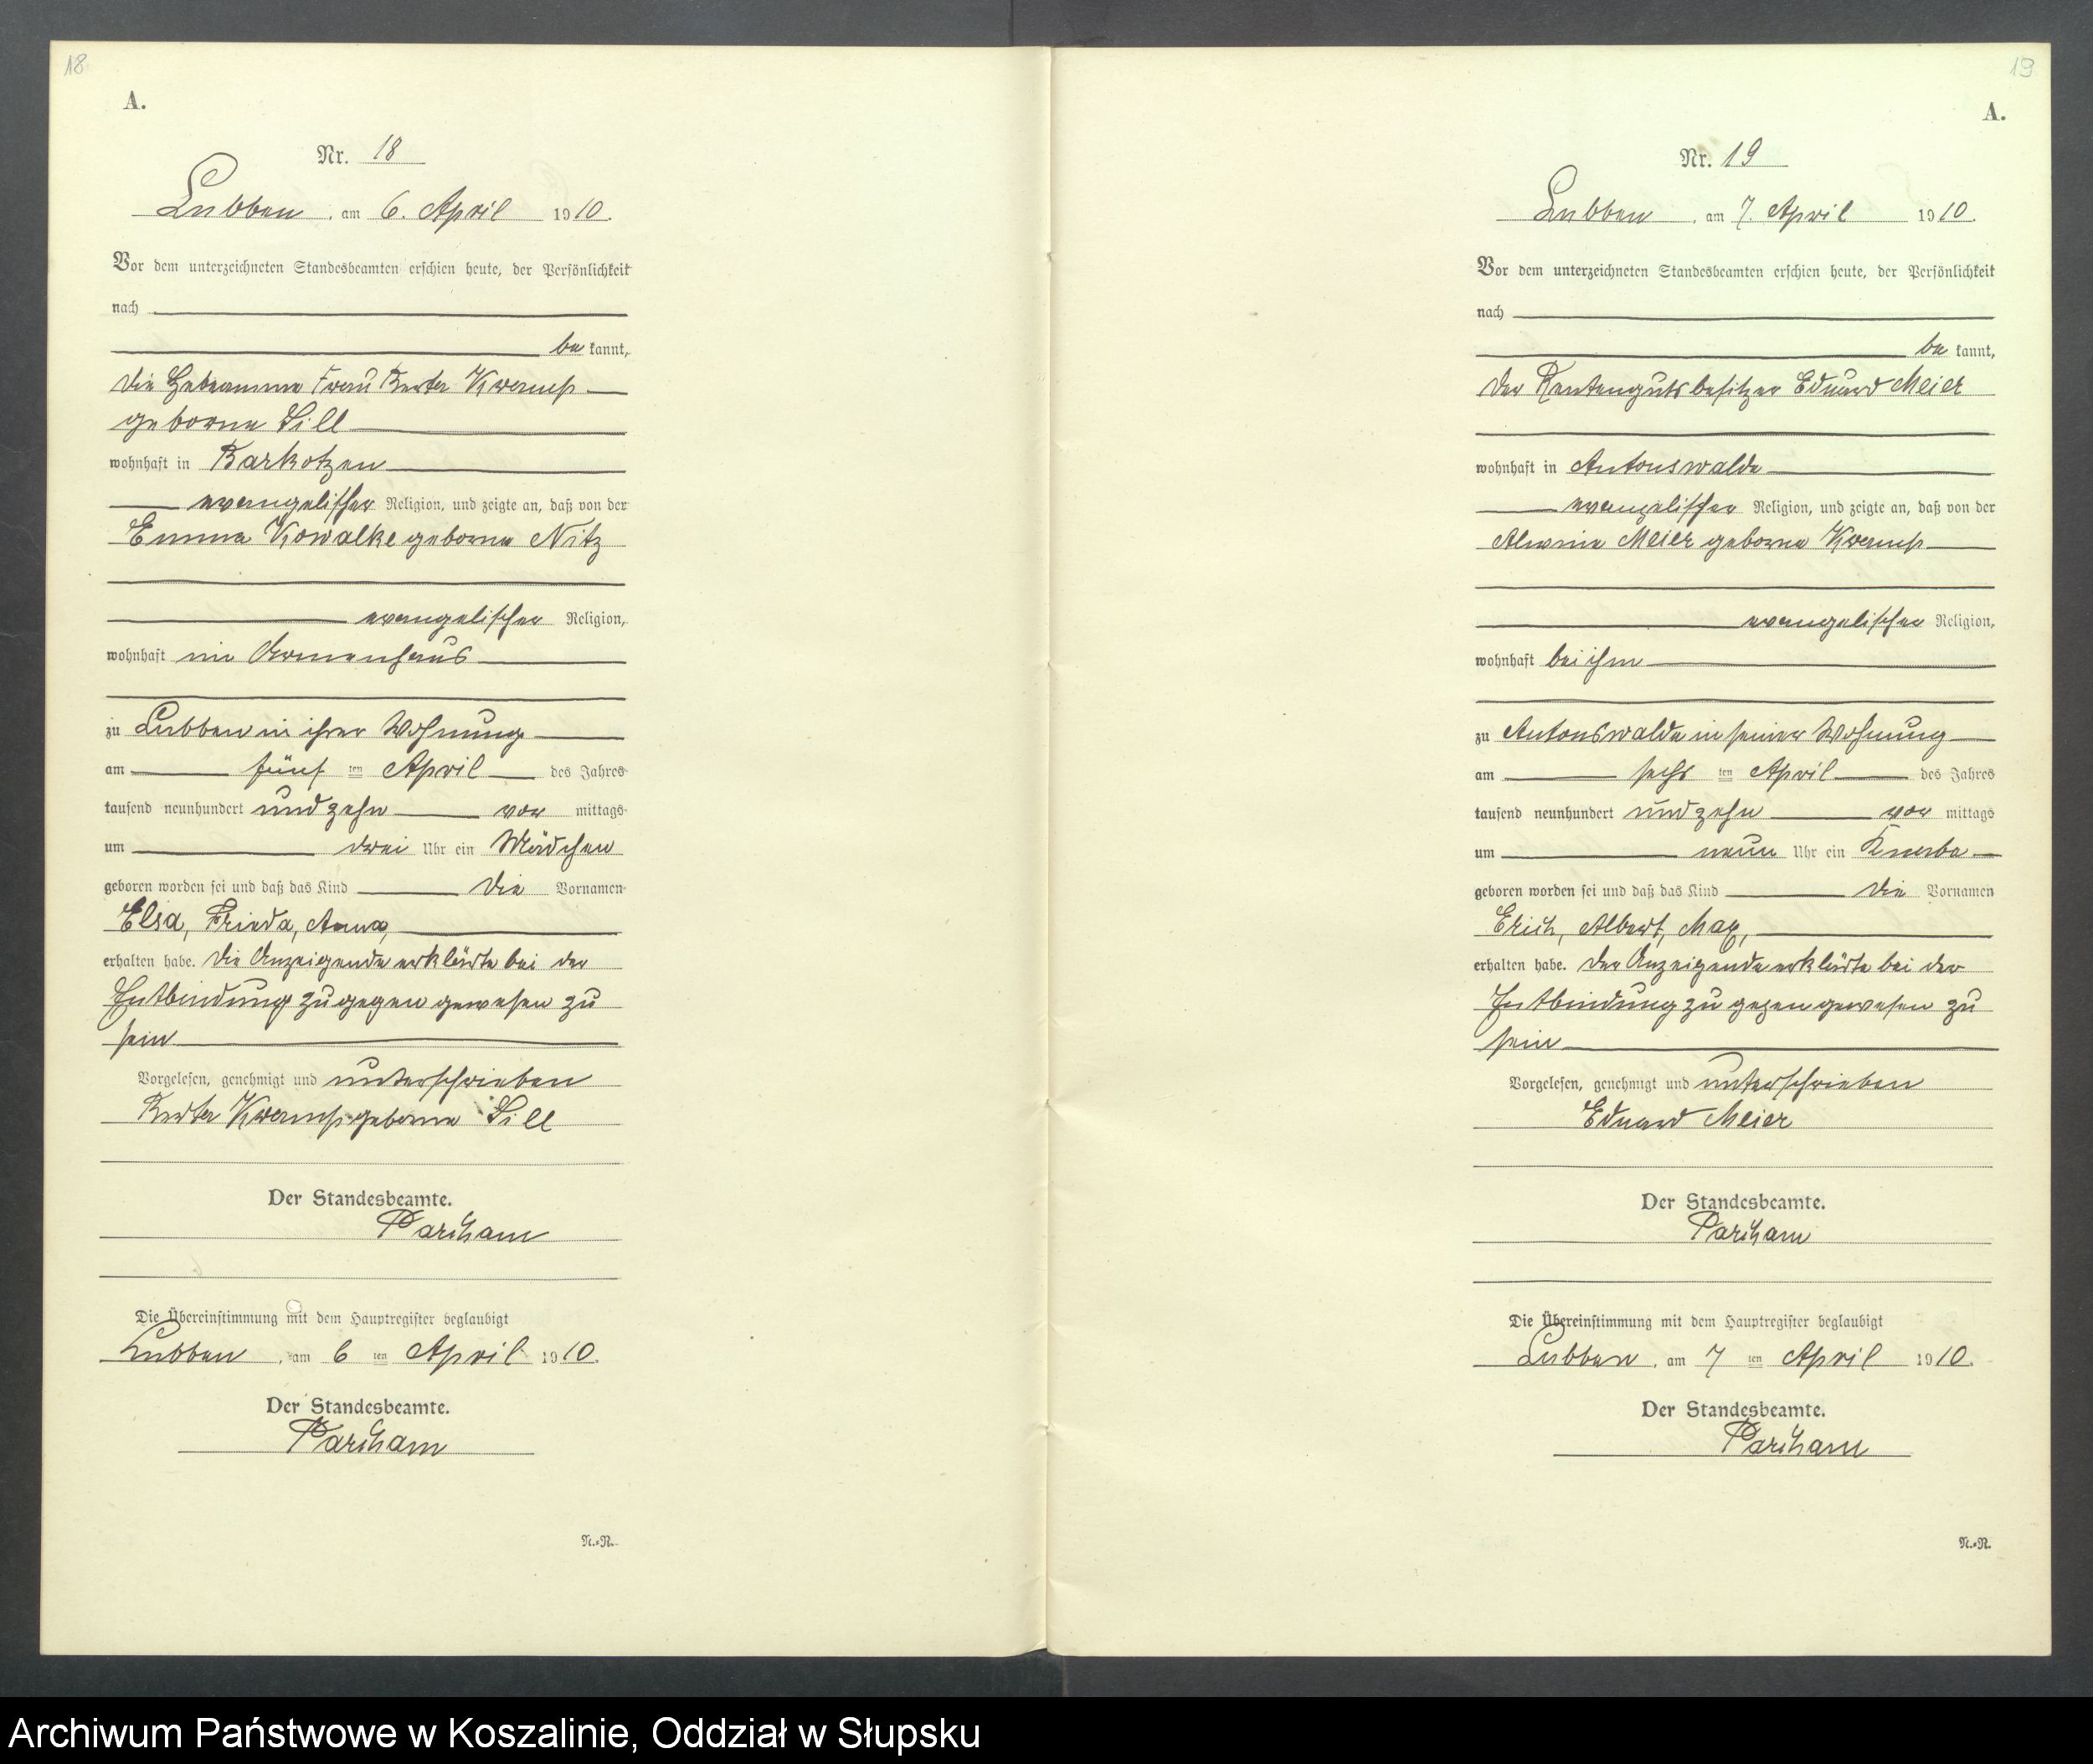 18
A.
Nr. 18
Lubben, am 6. April 1910.
Vor dem unterzeichneten Standesbeamten erschien heute, der Persönlichkeit
nach
be kannt,
die Hebamme Frau Berta
geborne Sill
wohnhaft in Barkotzen
evangelischer Religion, und zeigte an, daß von der
Emma Kowalke geborne Nitz
evangelischer Religion,
wohnhaft im Armenhaus
zu Lubben in ihrer Wohnung
am fünf ten April des Jahres
tausend neunhundert und zehn vor mittags
um drei Uhr ein Mädchen
geboren worden sei und daß das Kind die Vornamen
Elsa, Frieda, Anna,
erhalten habe. Die Anzeigende erklärte bei der
Entbindung zugegen gewesen zu
sein
Vorgelesen, genehmigt und unterschrieben
Berta geborne Sill
Der Standesbeamte.
Die Übereinstimmung mit dem Hauptregister beglaubigt
Lubben, am 6 ten April 1910.
Der Standesbeamte.
N.=R.
19
A.
Nr. 19
Lubben, am 7. April 1910.
Vor dem unterzeichneten Standesbeamten erschien heute, der Persönlichkeit
nach
be kannt,
der Rentengutsbesitzer Eduard Meier
wohnhaft in Antonswalde
evangelischer Religion, und zeigte an, daß von der
Alwine Meier geborne
evangelischer Religion,
wohnhaft bei ihm
zu Antonswalde in seiner Wohnung
am sechs ten April des Jahres
tausend neunhundert und zehn vor mittags
um neun Uhr ein Knabe
geboren worden sei und daß das Kind die Vornamen
Erich, Albert, Max,
erhalten habe. Der Anzeigende erklärte bei der
Entbindung zugegen gewesen zu
sein
Vorgelesen, genehmigt und unterschrieben
Eduard Meier
Der Standesbeamte.
Die Übereinstimmung mit dem Hauptregister beglaubigt
Lubben, am 7 ten April 1910.
Der Standesbeamte.
N.=R.
Archiwum Państwowe w Koszalinie, Oddział w Słupsku